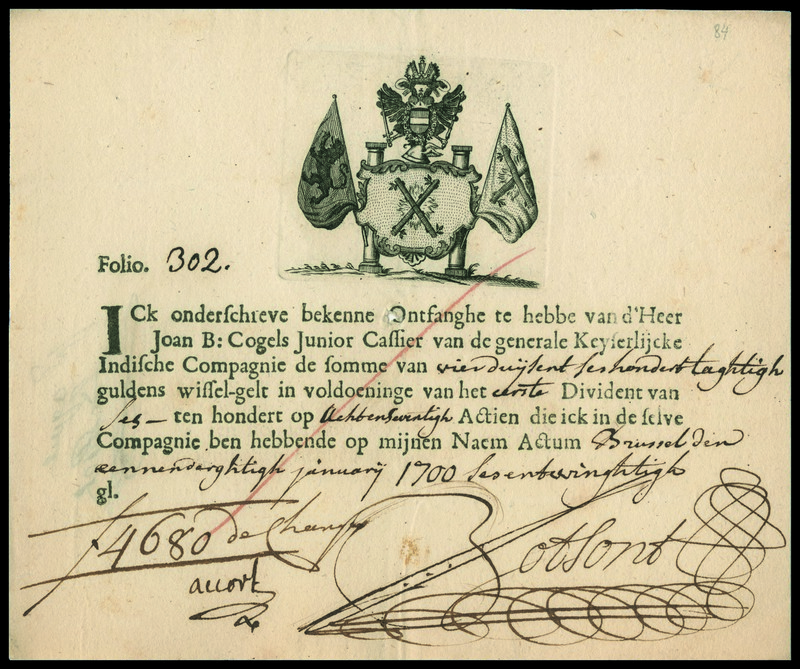 84
Folio. 302.
ICk onderschreve bekenne Ontfanghe te hebbe van d'Heer
Joan B: Cogels Junior Cassier van de generale Keyserlijcke
Indische Compagnie de somme van vierduijsent seshondert taghtigh
guldens wissel-gelt in voldoeninge van het eerste Divident van
ses - ten hondert op Achtensevintigh Actien die ick in de selve
Compagnie ben hebbende op mijnen Naem Actum Brussel den
eennendarghtigh januarij 1700 sesentwinghtigh
gl.
f 4680 de Change
accort